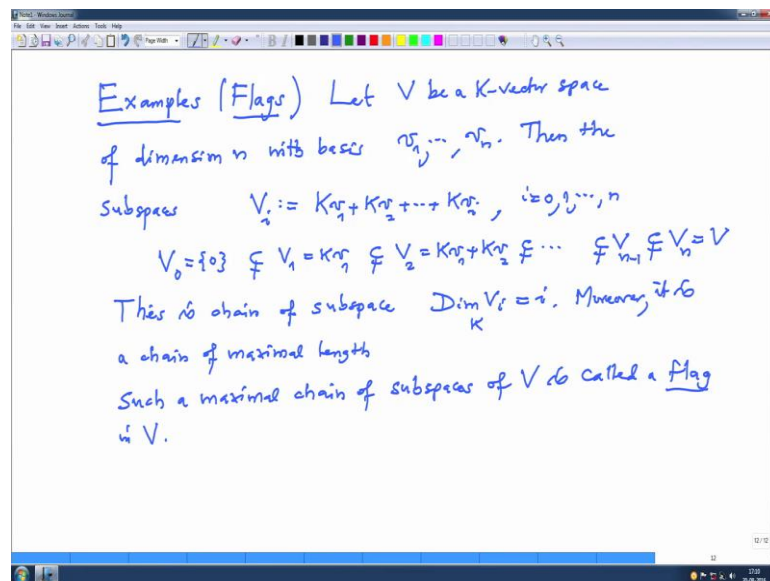 Note1 - Windows Journal
File Edit View Insert Actions Tools Help
Page Width
Examples (Flags) Let V be a K-vector space
of dimension n with basis v₁, ⋯, vₙ. Then the
subspaces Vᵢ := Kv₁ + Kv₂ + ⋯ + Kvᵢ, i=0, 1, ⋯, n
V₀ = {0} ⊊ V₁ = Kv₁ ⊊ V₂ = Kv₁ + Kv₂ ⊊ ⋯ ⊊ Vₙ₋₁ ⊊ Vₙ = V
This is chain of subspace Dim_K Vᵢ = i. Moreover, it is
a chain of maximal length
Such a maximal chain of subspaces of V is called a flag
in V.
12/12
12
17:10